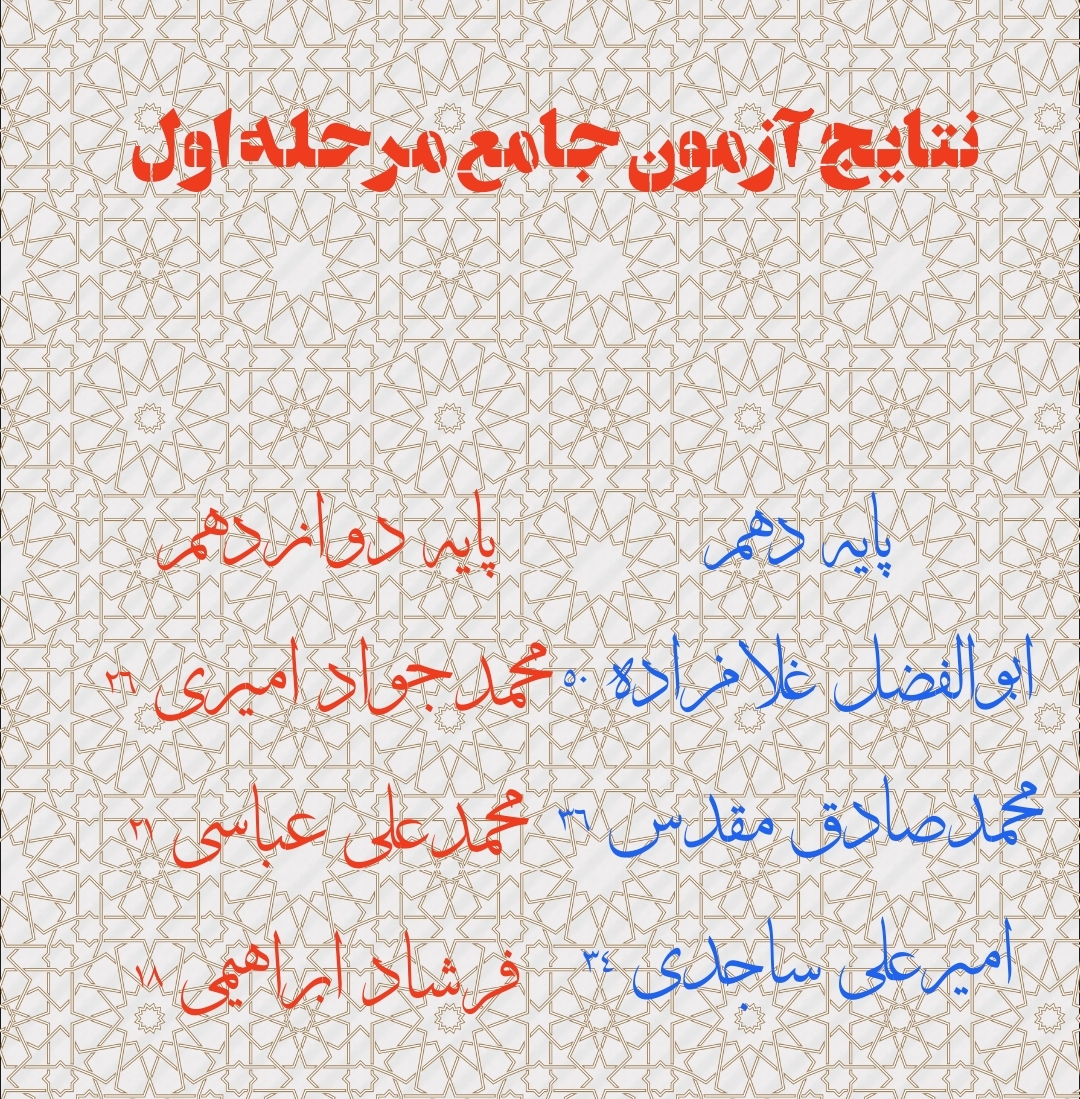 نتایج آزمون جامع مرحله اول
پایه دهم
ابوالفضل غلامزاده ۵۰
محمدصادق مقدس ۳۶
امیرعلی ساجدی ۳۴
پایه دوازدهم
محمدجواد امیری ۲۶
محمدعلی عباسی ۲۱
فرشاد ابراهیمی ۱۸